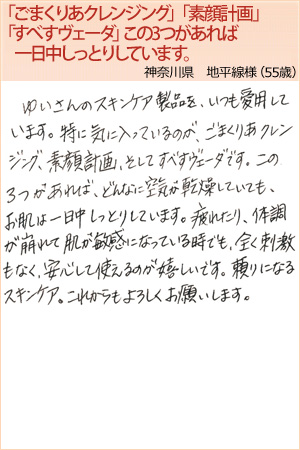 「ごまくりあクレンジング」「素顔計画」
「すべすべヴェーダ」この3つがあれば
一日中しっとりしています。
神奈川県　地平線様（55歳）
ゆいさんのスキンケア製品を、いつも愛用して
います。特に気に入っているのが、ごまくりあクレン
ジング、素顔計画、そしてすべすべヴェーダです。この
3つがあれば、どんなに空気が乾燥していても、
お肌は一日中しっとりしています。疲れたり、体調
が崩れて肌が敏感になっている時でも、全く刺激
もなく、安心して使えるのが嬉しいです。頼りになる
スキンケア。これからもよろしくお願いします。